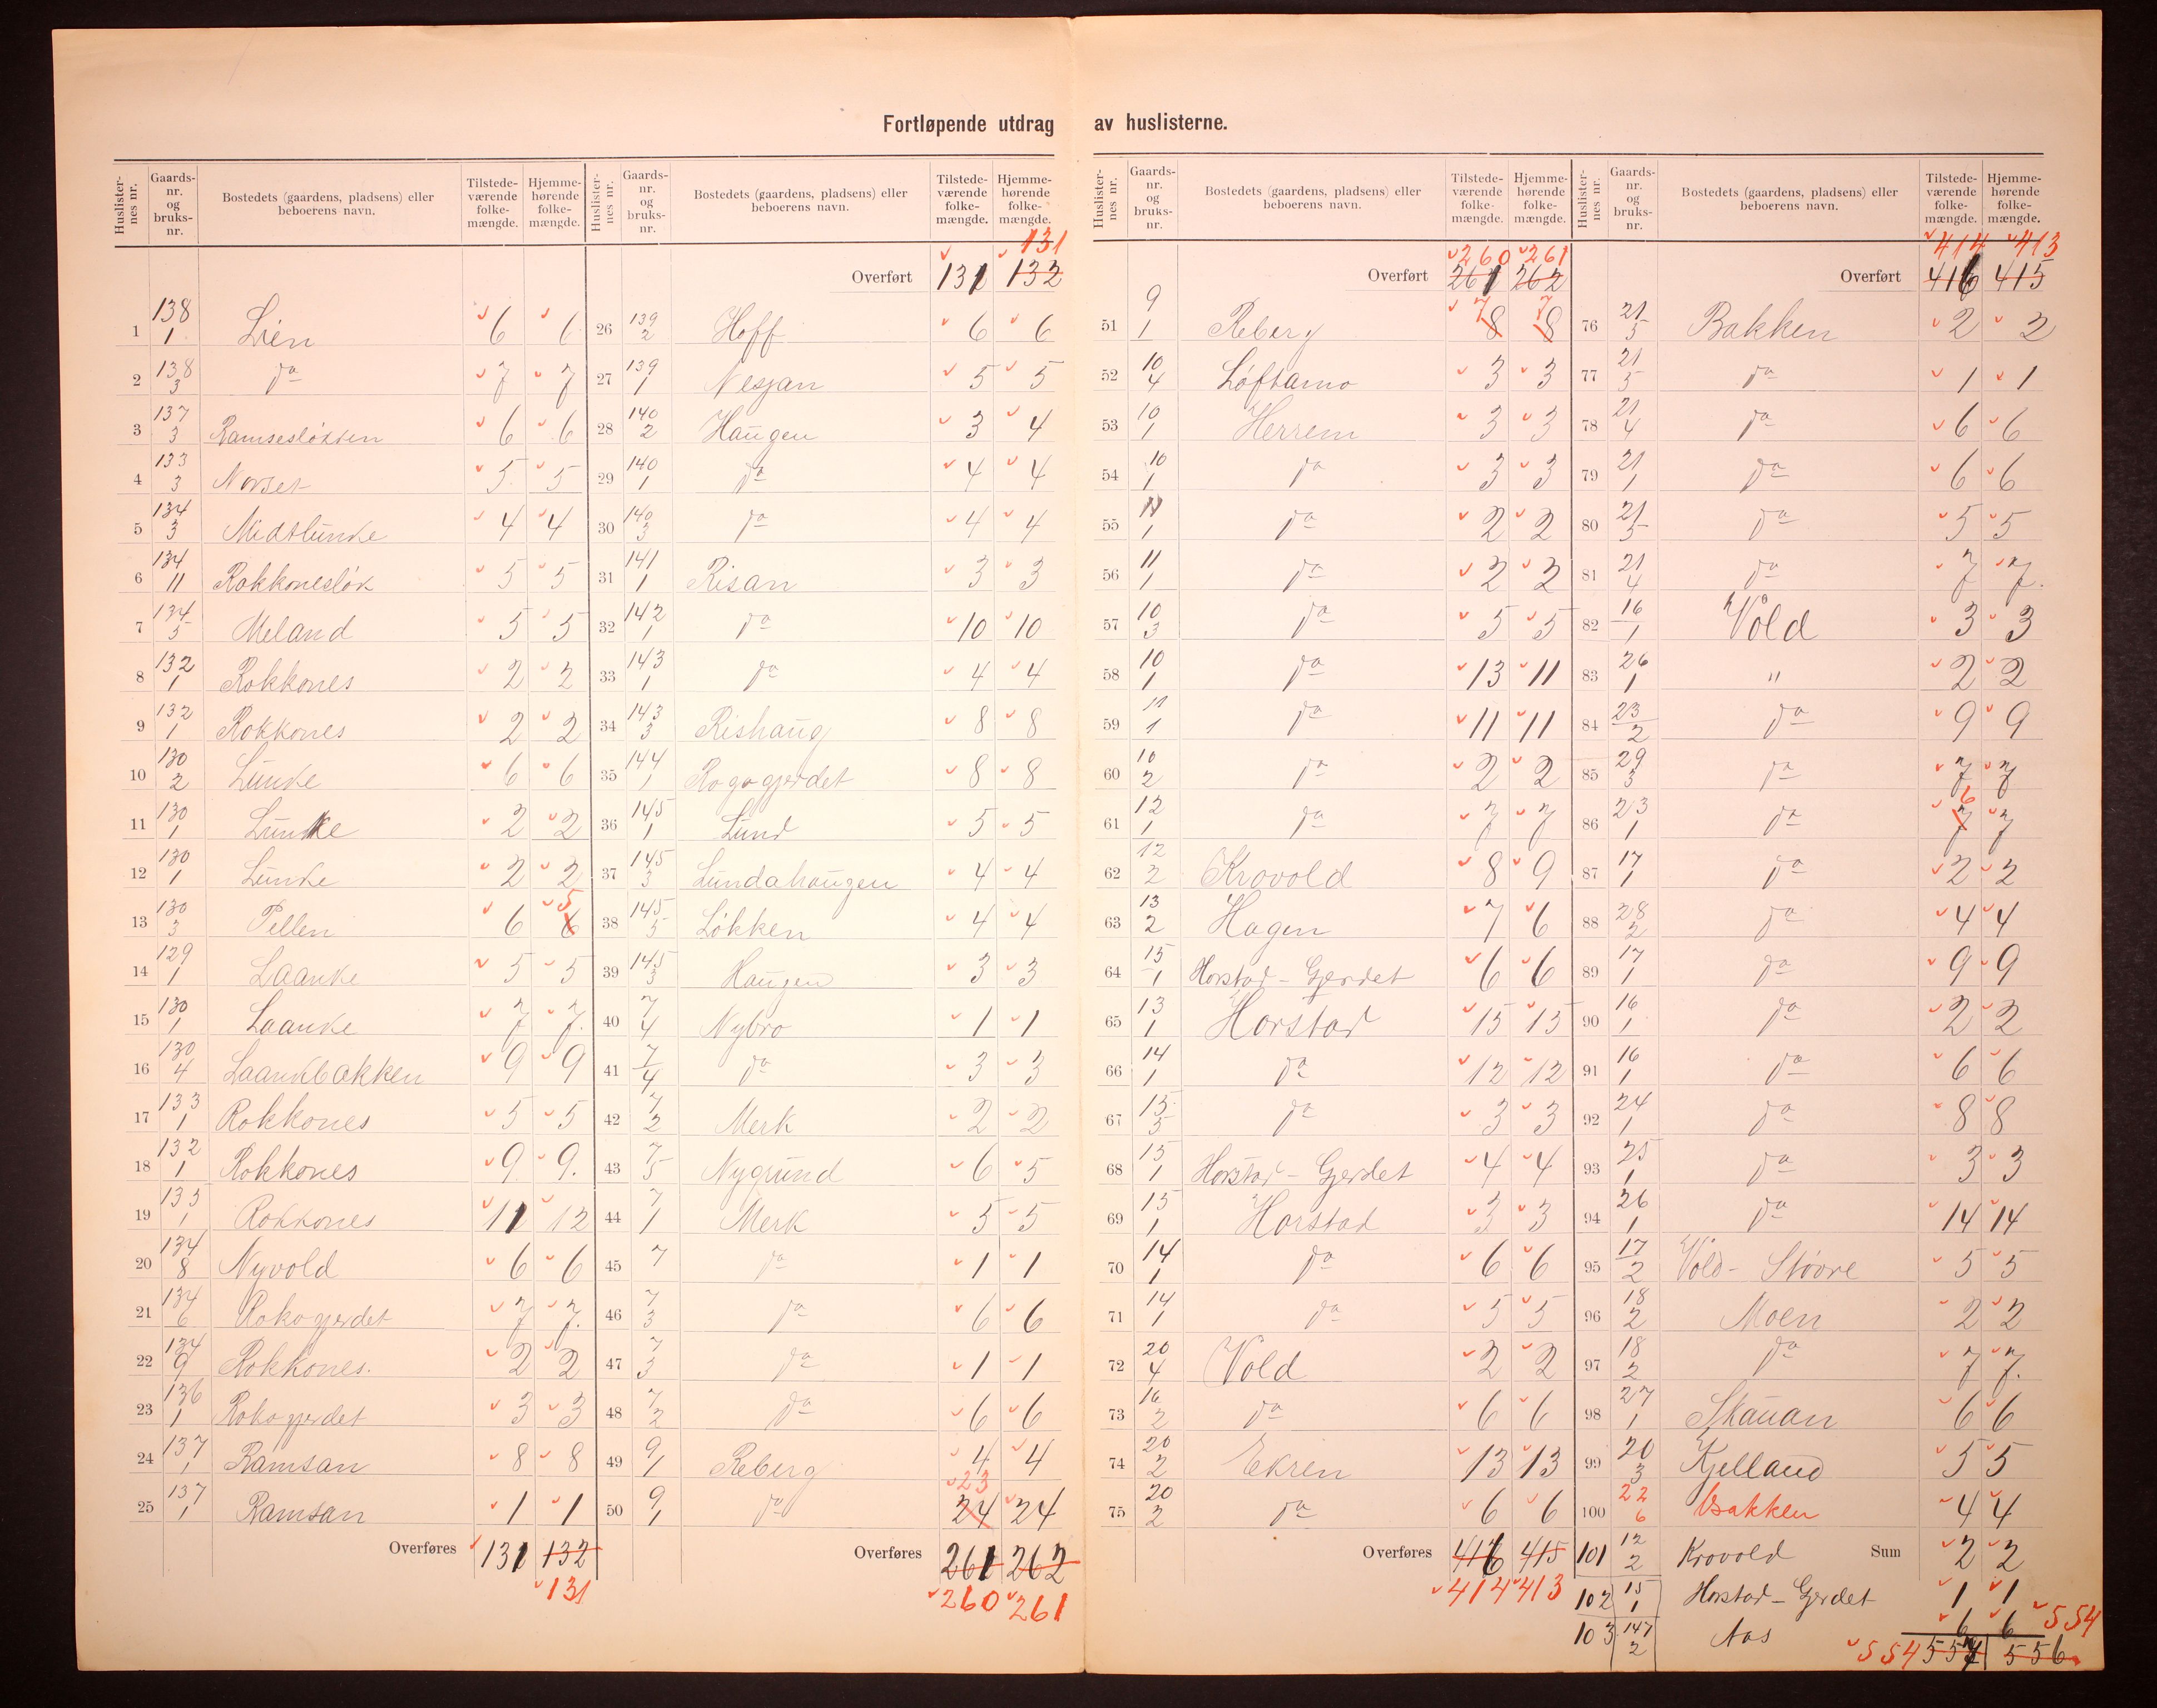 Fortløpende utdrag av huslisterne.
Huslisternes nr. | Gaards-nr. og bruks-nr. | Bostedets (gaardens, pladsens) eller beboerens navn. | Tilstedeværende folkemængde. | Hjemmehørende folkemængde.
1 138/1 Lien 6 6
2 138/3 do 7 7
3 137/3 Ramsesløkken 6 6
4 133/3 Norset 5 5
5 134/3 Midtlunke 4 4
6 134/11 Rokkonesløk 5 5
7 134/5 Meland 5 5
8 132/1 Rokkones 2 2
9 132/1 Rokkones 2 2
10 130/2 Lunke 6 6
11 130/1 Lunke 2 2
12 130/1 Lunke 2 2
13 130/3 Pellen 6 6 5
14 129/1 Laanke 5 5
15 130/1 Laanke 7 7.
16 130/4 Laankbakken 9 9
17 133/1 Rokkones 5 5
18 132/1 Rokkones 9 9.
19 135/1 Rokkones 11 12
20 134/8 Nyvold 6 6
21 134/6 Rokogjerdet 7 7.
22 134/9 Rokkones. 2 2
23 136/1 Rokogjerdet 3 3
24 137/1 Ramsan 8 8
25 137/1 Ramsan 1 1
Overføres 131 132
131
Huslisternes nr. | Gaards-nr. og bruks-nr. | Bostedets (gaardens, pladsens) eller beboerens navn. | Tilstedeværende folkemængde. | Hjemmehørende folkemængde.
131
Overført 131 132
26 139/2 Hoff 6 6
27 139/1 Nesjan 5 5
28 140/2 Haugen 3 4
29 140/1 do 4 4
30 140/3 do 4 4
31 141/1 Risan 3 3
32 142/1 do 10 10
33 143/1 do 4 4
34 143/3 Rishaug 8 8
35 144/1 Rogogjerdet 8 8
36 145/1 Lund 5 5
37 145/3 Lundahaugen 4 4
38 145/5 Løkken 4 4
39 145/3 Haugen 3 3
40 7/4 Nybro 1 1
41 7/4 do 3 3
42 7/2 Merk 2 2
43 7/5 Nygrund 6 5
44 7/1 Merk 5 5
45 7 do 1 1
46 7/3 do 6 6
47 7/3 do 1 1
48 7/2 do 6 6
49 9/1 Reberg 4 4
50 9/1 do 24 23 24
Overføres 261 262
260 261
Huslisternes nr. | Gaards-nr. og bruks-nr. | Bostedets (gaardens, pladsens) eller beboerens navn. | Tilstedeværende folkemængde. | Hjemmehørende folkemængde.
260 261
Overført 261 262
51 9/1 Reberg 8 7 8 7
52 10/4 Løftamo 3 3
53 10/1 Herrem 3 3
54 10/1 do 3 3
55 11/1 do 2 2
56 11/1 do 2 2
57 10/3 do 5 5
58 10/1 do 13 11
59 11/1 do 11 11
60 10/2 do 2 2
61 12/1 do 7 7
62 12/2 Krovold 8 9
63 13/2 Hagen 7 6
64 15/1 Horstad-Gjerdet 6 6
65 13/1 Horstad 15 15
66 14/1 do 12 12
67 15/5 do 3 3
68 15/1 Horstad-Gjerdet 4 4
69 15/1 Horstad 3 3
70 14/1 do 6 6
71 14/1 do 5 5
72 20/4 Vold 2 2
73 16/2 do 6 6
74 20/2 Ekren 13 13
75 20/2 do 6 6
Overføres 416 415
414 413
Huslisternes nr. | Gaards-nr. og bruks-nr. | Bostedets (gaardens, pladsens) eller beboerens navn. | Tilstedeværende folkemængde. | Hjemmehørende folkemængde.
414 413
Overført 416 415
76 21/5 Bakken 2 2
77 21/5 do 1 1
78 21/4 do 6 6
79 21/1 do 6 6
80 21/5 do 5 5
81 21/4 do 7 7.
82 16/1 Vold 3 3
83 26/1 " 2 2
84 23/2 do 9 9
85 29/3 do 7 7
86 23/1 do 7 6 7
87 17/1 do 2 2
88 28/2 do 4 4
89 17/1 do 9 9
90 16/1 do 2 2
91 16/1 do 6 6
92 24/1 do 8 8
93 25/1 do 3 3
94 26/1 do 14 14
95 17/2 Vold-Støvre 5 5
96 18/2 Moen 2 2
97 18/2 do 7 7.
98 27/1 Skauan 6 6
99 20/3 Kjelland 5 5
100 22/6 Bakken 4 4
101 12/2 Krovold Sum 2 2
102 15/1 Horstad-Gjerdet 1 1
103 147/2 Aas 6 6 554
554 557 556